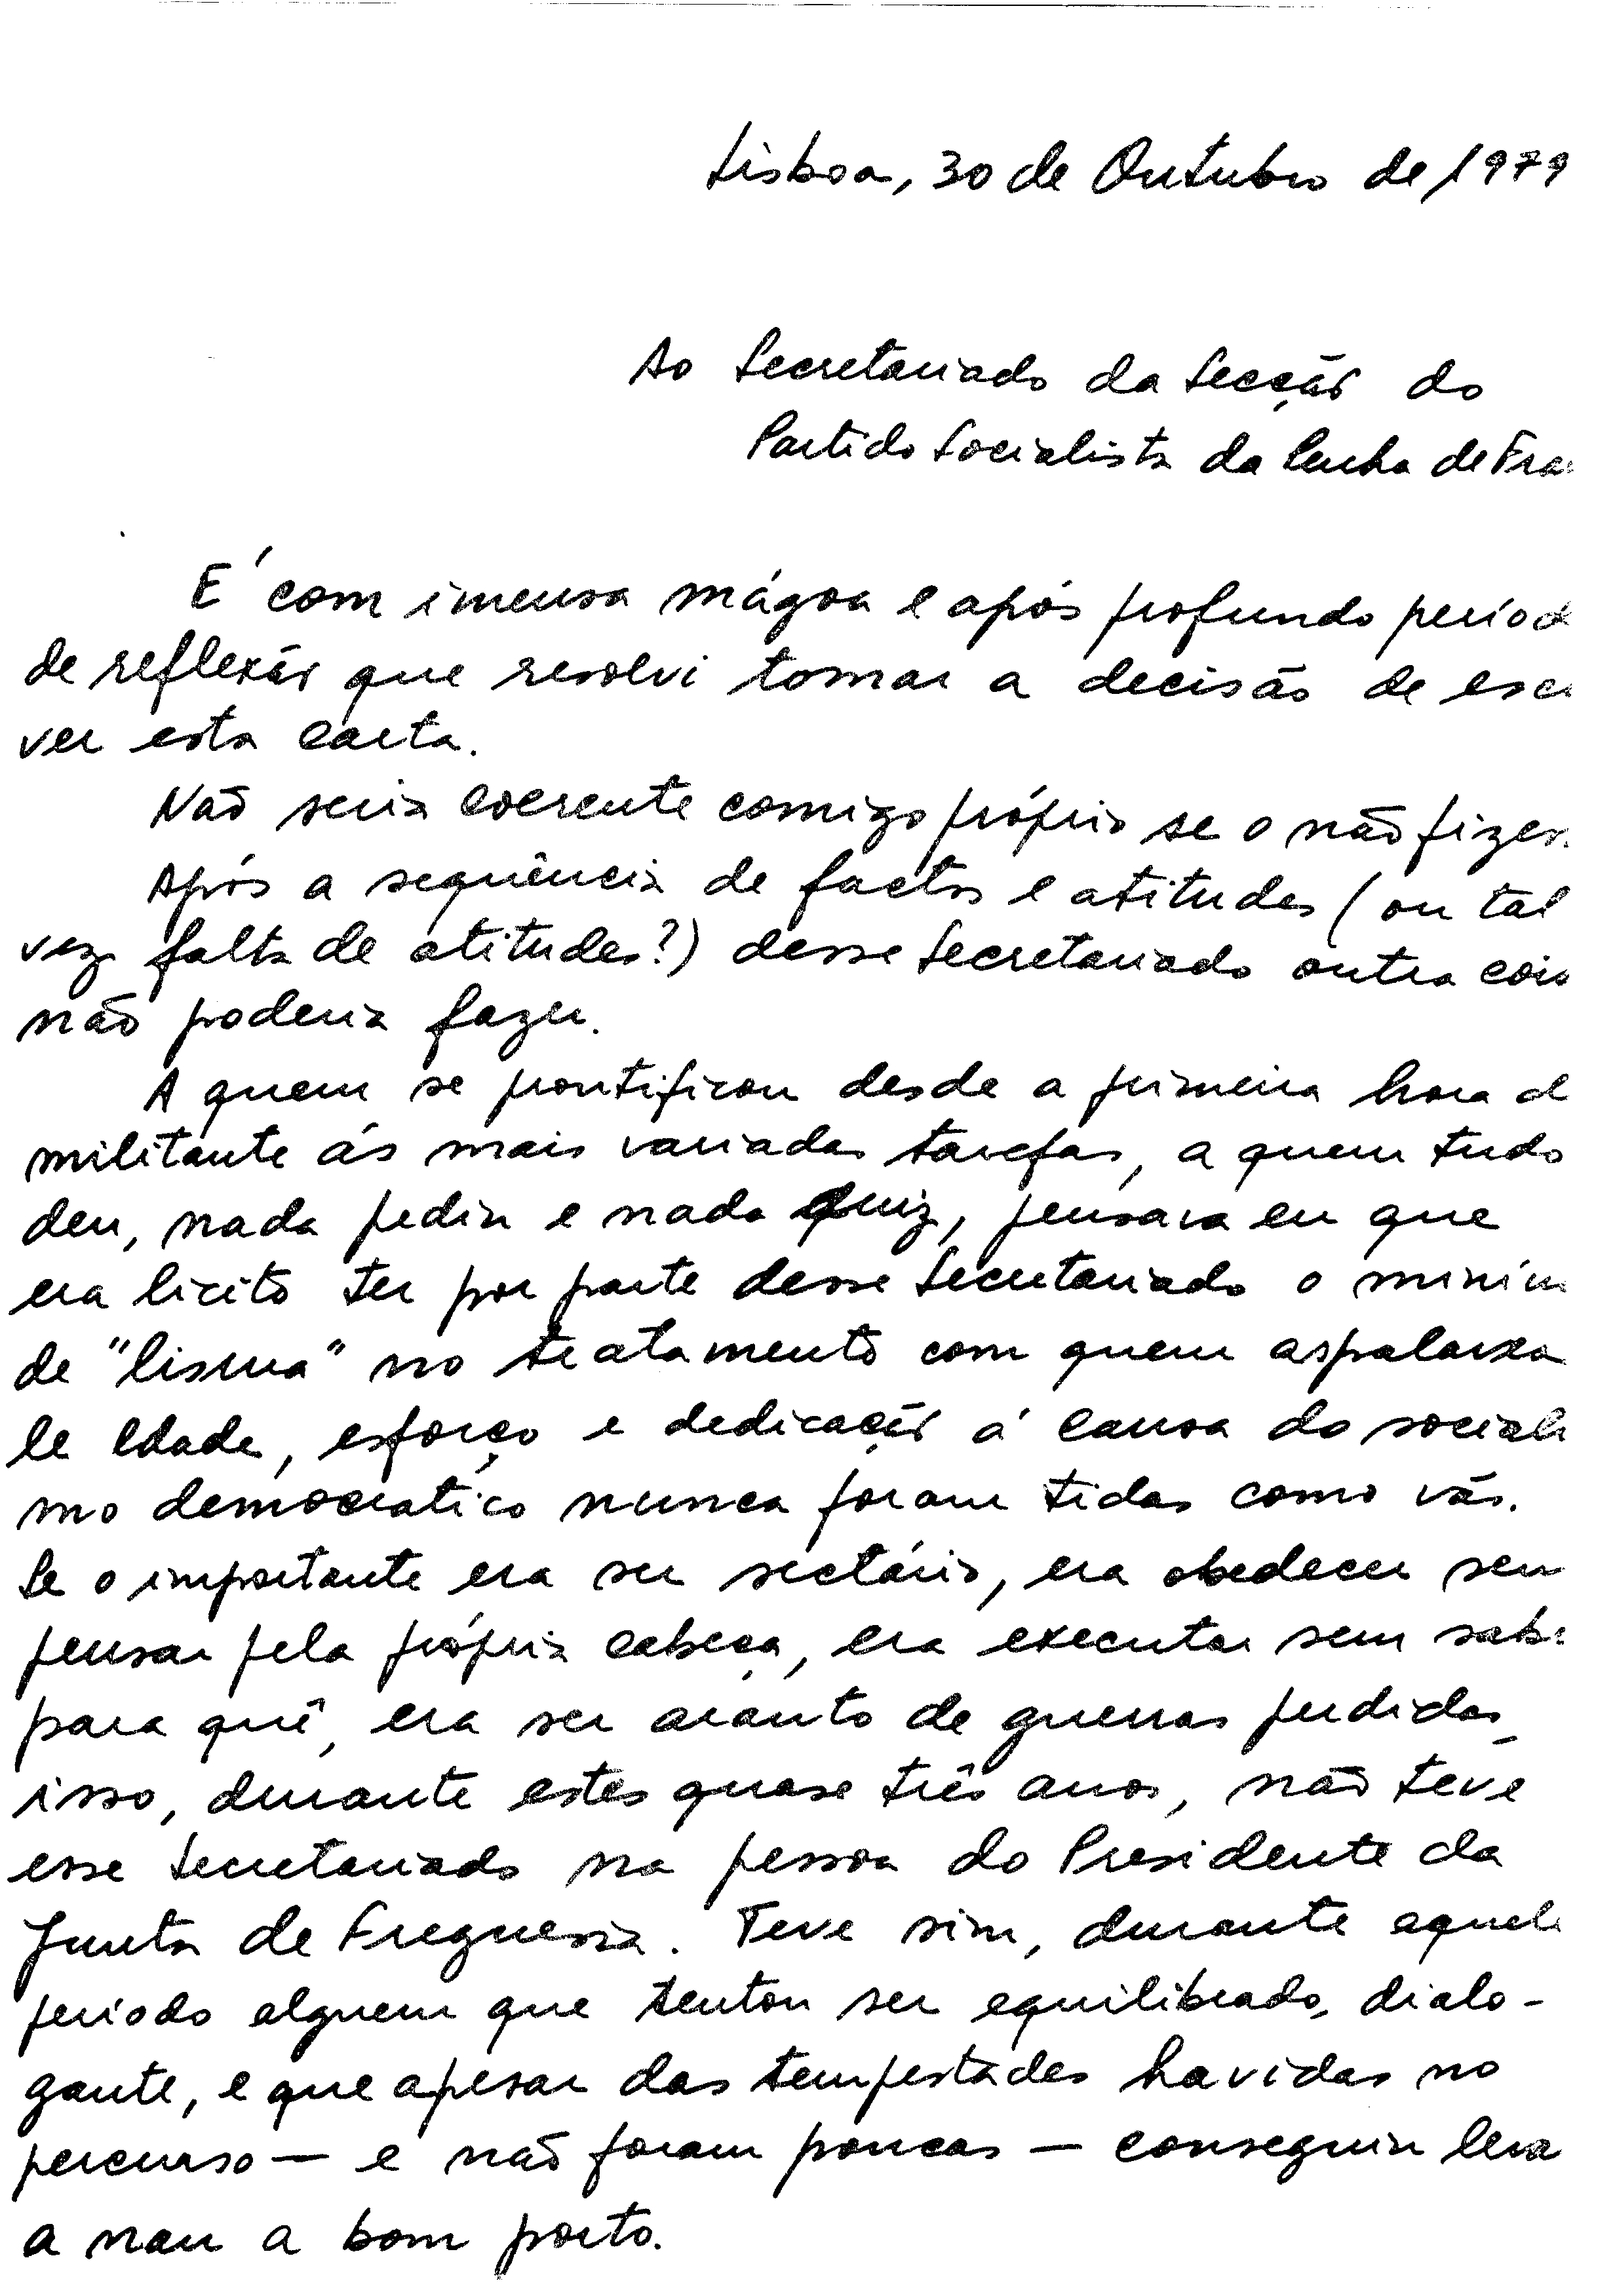 Lisboa, 30 de Outubro de 1979
Ao Secretariado da Secção do
Partido Socialista da Penha de Fra
É com imensa mágoa e após profundo period
de reflexão que resolvi tomar a decisão de escr
ver esta carta.
Não seria coerente comigo próprio se o não fizes
Após a sequência de factos e atitudes (ou tal
vez falta de atitudes?) desse Secretariado outra cois
não poderia fazer.
A quem se prontificou desde a primeira hora d
militante ás mais variadas tarefas, a quem tudo
deu, nada pediu e nada quiz, pensava eu que
era licito ter por parte desse Secretariado o minim
de "lisura" no tratamento com quem as palavra
le ldade, esforço e dedicação á causa do sociali
mo democratico nunca foram tidas como vãs.
Se o importante era ser sectário, era obedecer sem
pensar pela própria cabeça, era executar sem sabe
para quê, era ser arauto de guerras perdidas,
isso, durante estes quase três anos, não teve
esse Secretariado na pessoa do Presidente da
Junta de Freguesia. Teve sim, durante aquele
periodo alguem que tentou ser equilibrado, dialo-
gante, e que apesar das tempestades havidas no
percurso — e não foram poucas — conseguiu leva
a nau a bom porto.